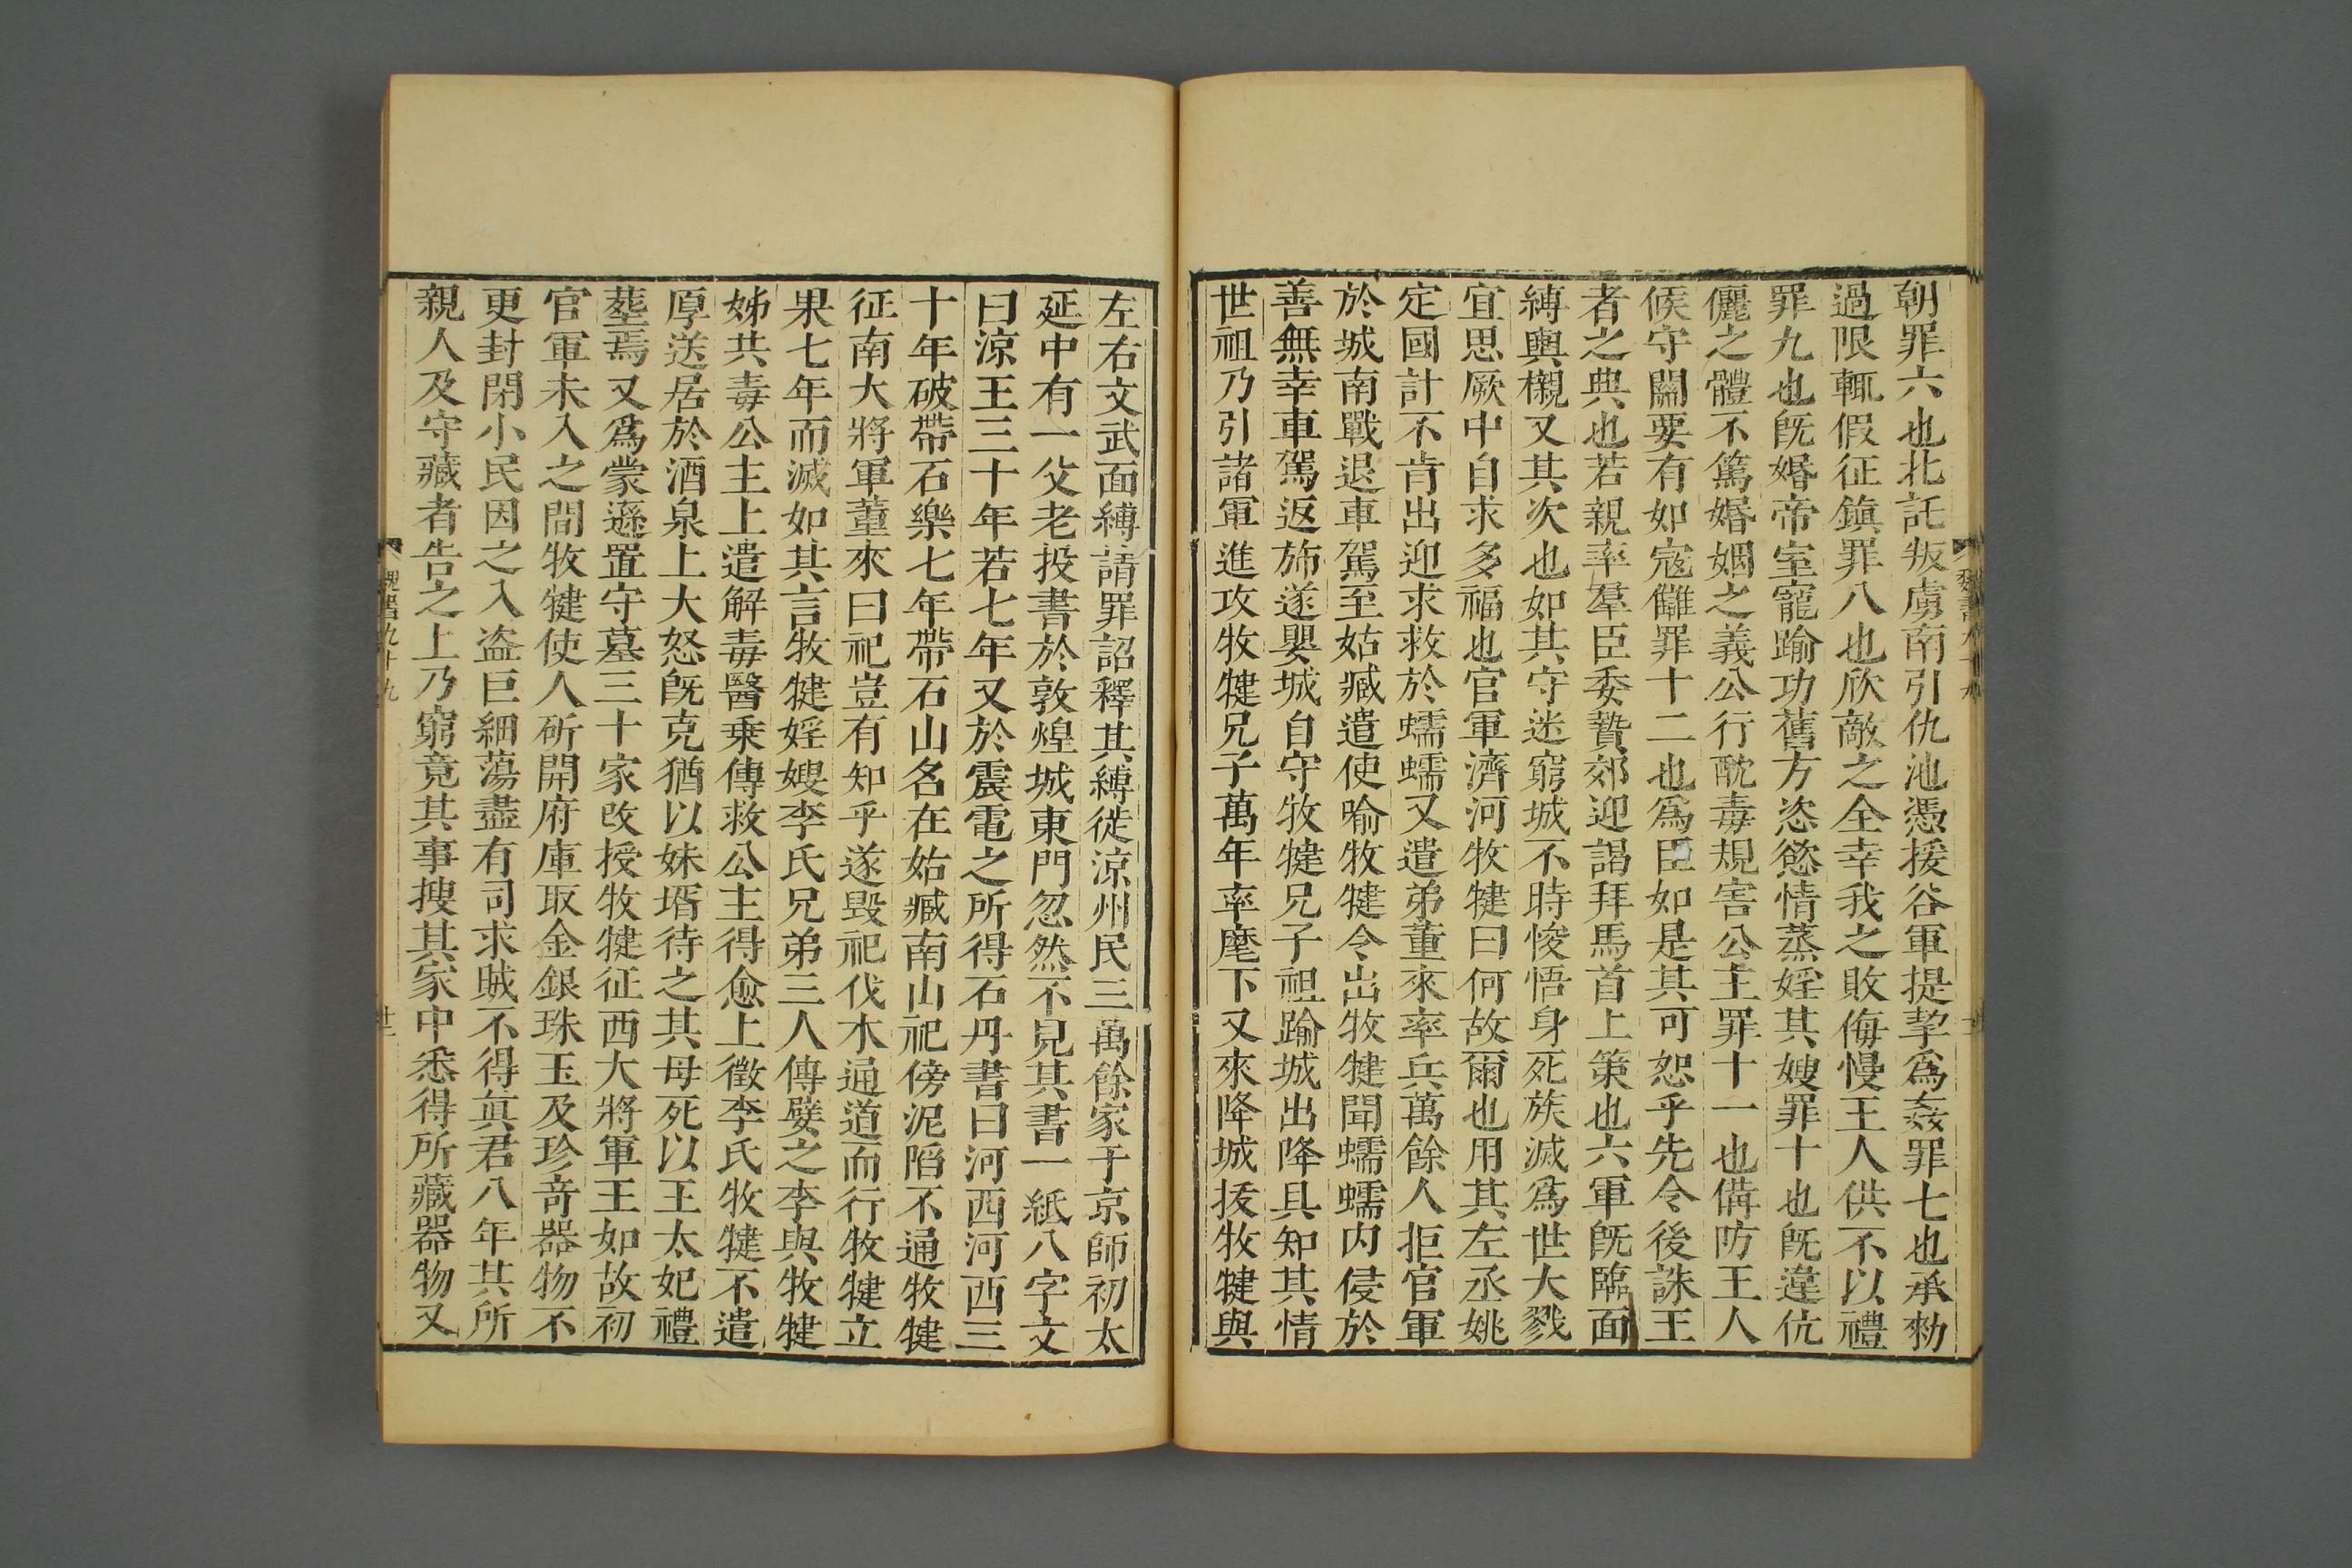 朝罪六也北託叛虜南引仇池憑援谷軍提挈爲姦罪七也承勑
過限輒假征鎭罪八也欣敵之全幸我之敗侮慢王人供不以禮
罪九也旣婚帝室寵踰功舊方恣慾情蒸婬其嫂罪十也旣違伉
儷之體不篤婚姻之義公行酖毒規害公主罪十一也備防王人
候守關要有如寇讎罪十二也爲臣如是其可恕乎先令後誅王
者之典也若親率羣臣委贄郊迎謁拜馬首上策也六軍旣臨面
縛輿櫬又其次也如其守迷窮城不時悛悟身死族滅爲世大戮
宜思厥中自求多福也官軍濟河牧犍曰何故爾也用其左丞姚
定國計不肯出迎求救於蠕蠕又遣弟董來率兵萬餘人拒官軍
於城南戰退車駕至姑臧遣使喻牧犍令出牧犍聞蠕蠕內侵於
善無幸車駕返斾遂嬰城自守牧犍兄子祖踰城出降具知其情
世祖乃引諸軍進攻牧犍兄子萬年率麾下又來降城拔牧犍與
左右文武面縛請罪詔釋其縛徙涼州民三萬餘家于京師初太
延中有一父老投書於敦煌城東門忽然不見其書一紙八字文
曰涼王三十年若七年又於震電之所得石丹書曰河西河西三
十年破帶石樂七年帶石山名在姑臧南山祀傍泥陷不通牧犍
征南大將軍董來曰祀豈有知乎遂毀祀伐木通道而行牧犍立
果七年而滅如其言牧犍婬嫂李氏兄弟三人傳嬖之李與牧犍
姊共毒公主上遣解毒醫乗傳救公主得愈上徵李氏牧犍不遣
厚送居於酒泉上大怒旣克猶以妹壻待之其母死以王太妃禮
塟焉又爲蒙遜置守墓三十家改授牧犍征西大將軍王如故初
官軍未入之間牧犍使人斫開府庫取金銀珠玉及珍竒器物不
更封閉小民因之入盗巨細蕩盡有司求賊不得眞君八年其所
親人及守藏者告之上乃窮竟其事搜其家中悉得所藏器物又
魏書九十九